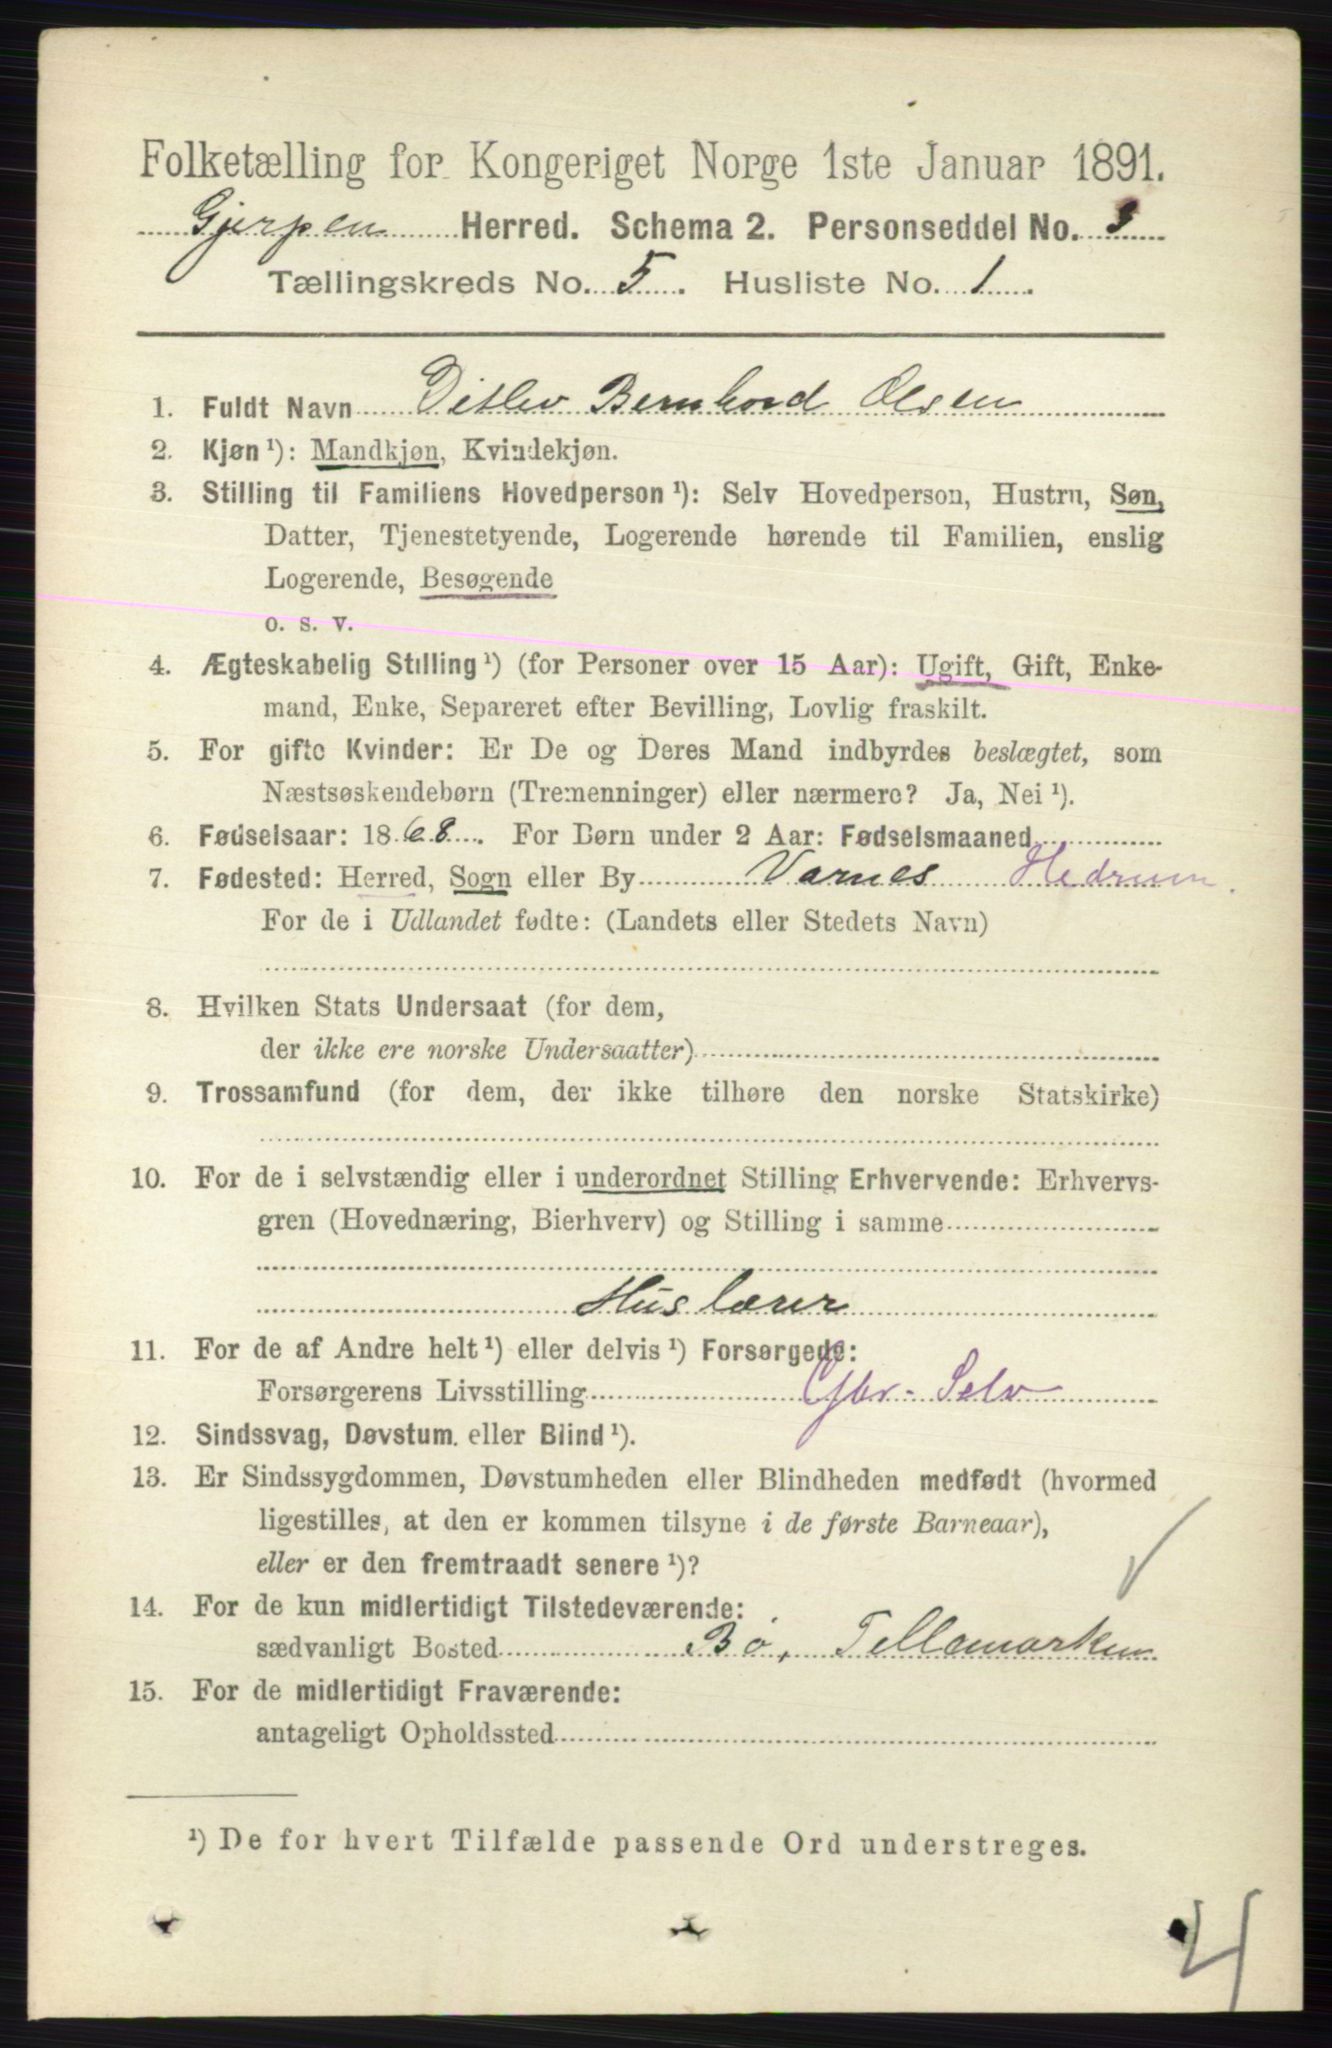 Folketælling for Kongeriget Norge 1ste Januar 1891.
Gjerpen Herred. Schema 2. Personseddel No. 3
Tællingskreds No. 5. Husliste No. 1.
1. Fuldt Navn Ditlev Bernhard Olsen
2. Kjøn ¹): Mandkjøn, Kvindekjøn.
3. Stilling til Familiens Hovedperson ¹): Selv Hovedperson, Hustru, Søn,
Datter, Tjenestetyende, Logerende hørende til Familien, enslig
Logerende, Besøgende
o. s. v.
4. Ægteskabelig Stilling ¹) (for Personer over 15 Aar): Ugift, Gift, Enke-
mand, Enke, Separeret efter Bevilling, Lovlig fraskilt.
5. For gifte Kvinder: Er De og Deres Mand indbyrdes beslægtet, som
Næstsøskendebørn (Tremenninger) eller nærmere? Ja, Nei ¹).
6. Fødselsaar: 1868. For Børn under 2 Aar: Fødselsmaaned
7. Fødested: Herred, Sogn eller By Varnes Hedrum.
For de i Udlandet fødte: (Landets eller Stedets Navn)
8. Hvilken Stats Undersaat (for dem,
der ikke ere norske Undersaatter)
9. Trossamfund (for dem, der ikke tilhøre den norske Statskirke)
10. For de i selvstændig eller i underordnet Stilling Erhvervende: Erhvervs-
gren (Hovednæring, Bierhverv) og Stilling i samme
Huslærer
11. For de af Andre helt ¹) eller delvis ¹) Forsørgede:
Forsørgerens Livsstilling Gbr. Selv
12. Sindssvag, Døvstum eller Blind ¹).
13. Er Sindssygdommen, Døvstumheden eller Blindheden medfødt (hvormed
ligestilles, at den er kommen tilsyne i de første Barneaar),
eller er den fremtraadt senere ¹)?
14. For de kun midlertidigt Tilstedeværende:
sædvanligt Bosted Bø, Tellemarken
15. For de midlertidigt Fraværende:
antageligt Opholdssted
¹) De for hvert Tilfælde passende Ord understreges.
4